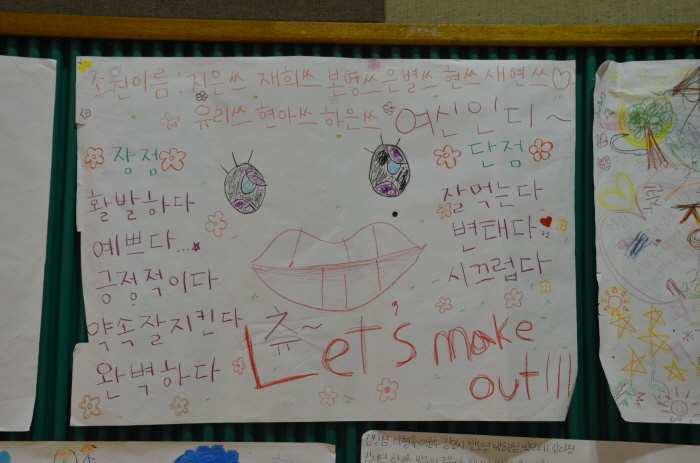 조원이름 : 지은쓰 재희쓰 본영쓰 은별쓰 현쓰 새연쓰♡
유리쓰 현아쓰 하은쓰 여신인디~
장점
활발하다
예쁘다...
긍정적이다
약속잘지킨다
완벽하다
단점
잘먹는다
변태다♥
시끄럽다
츄~
Let's make
out!!!